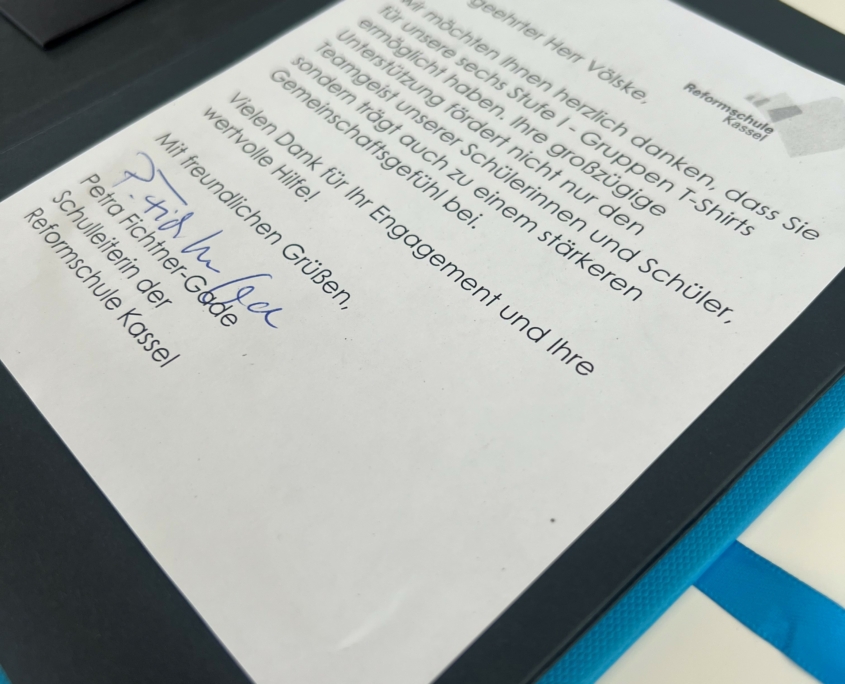 geehrter Herr Völske,
wir möchten Ihnen herzlich danken, dass Sie
für unsere sechs Stufe I - Gruppen T-Shirts
ermöglicht haben. Ihre großzügige
Unterstützung fördert nicht nur den
Teamgeist unserer Schülerinnen und Schüler,
sondern trägt auch zu einem stärkeren
Gemeinschaftsgefühl bei.
Vielen Dank für Ihr Engagement und Ihre
wertvolle Hilfe!
Mit freundlichen Grüßen,
Petra Fichtner-Gade
Schulleiterin der
Reformschule Kassel
Reformschule
Kassel